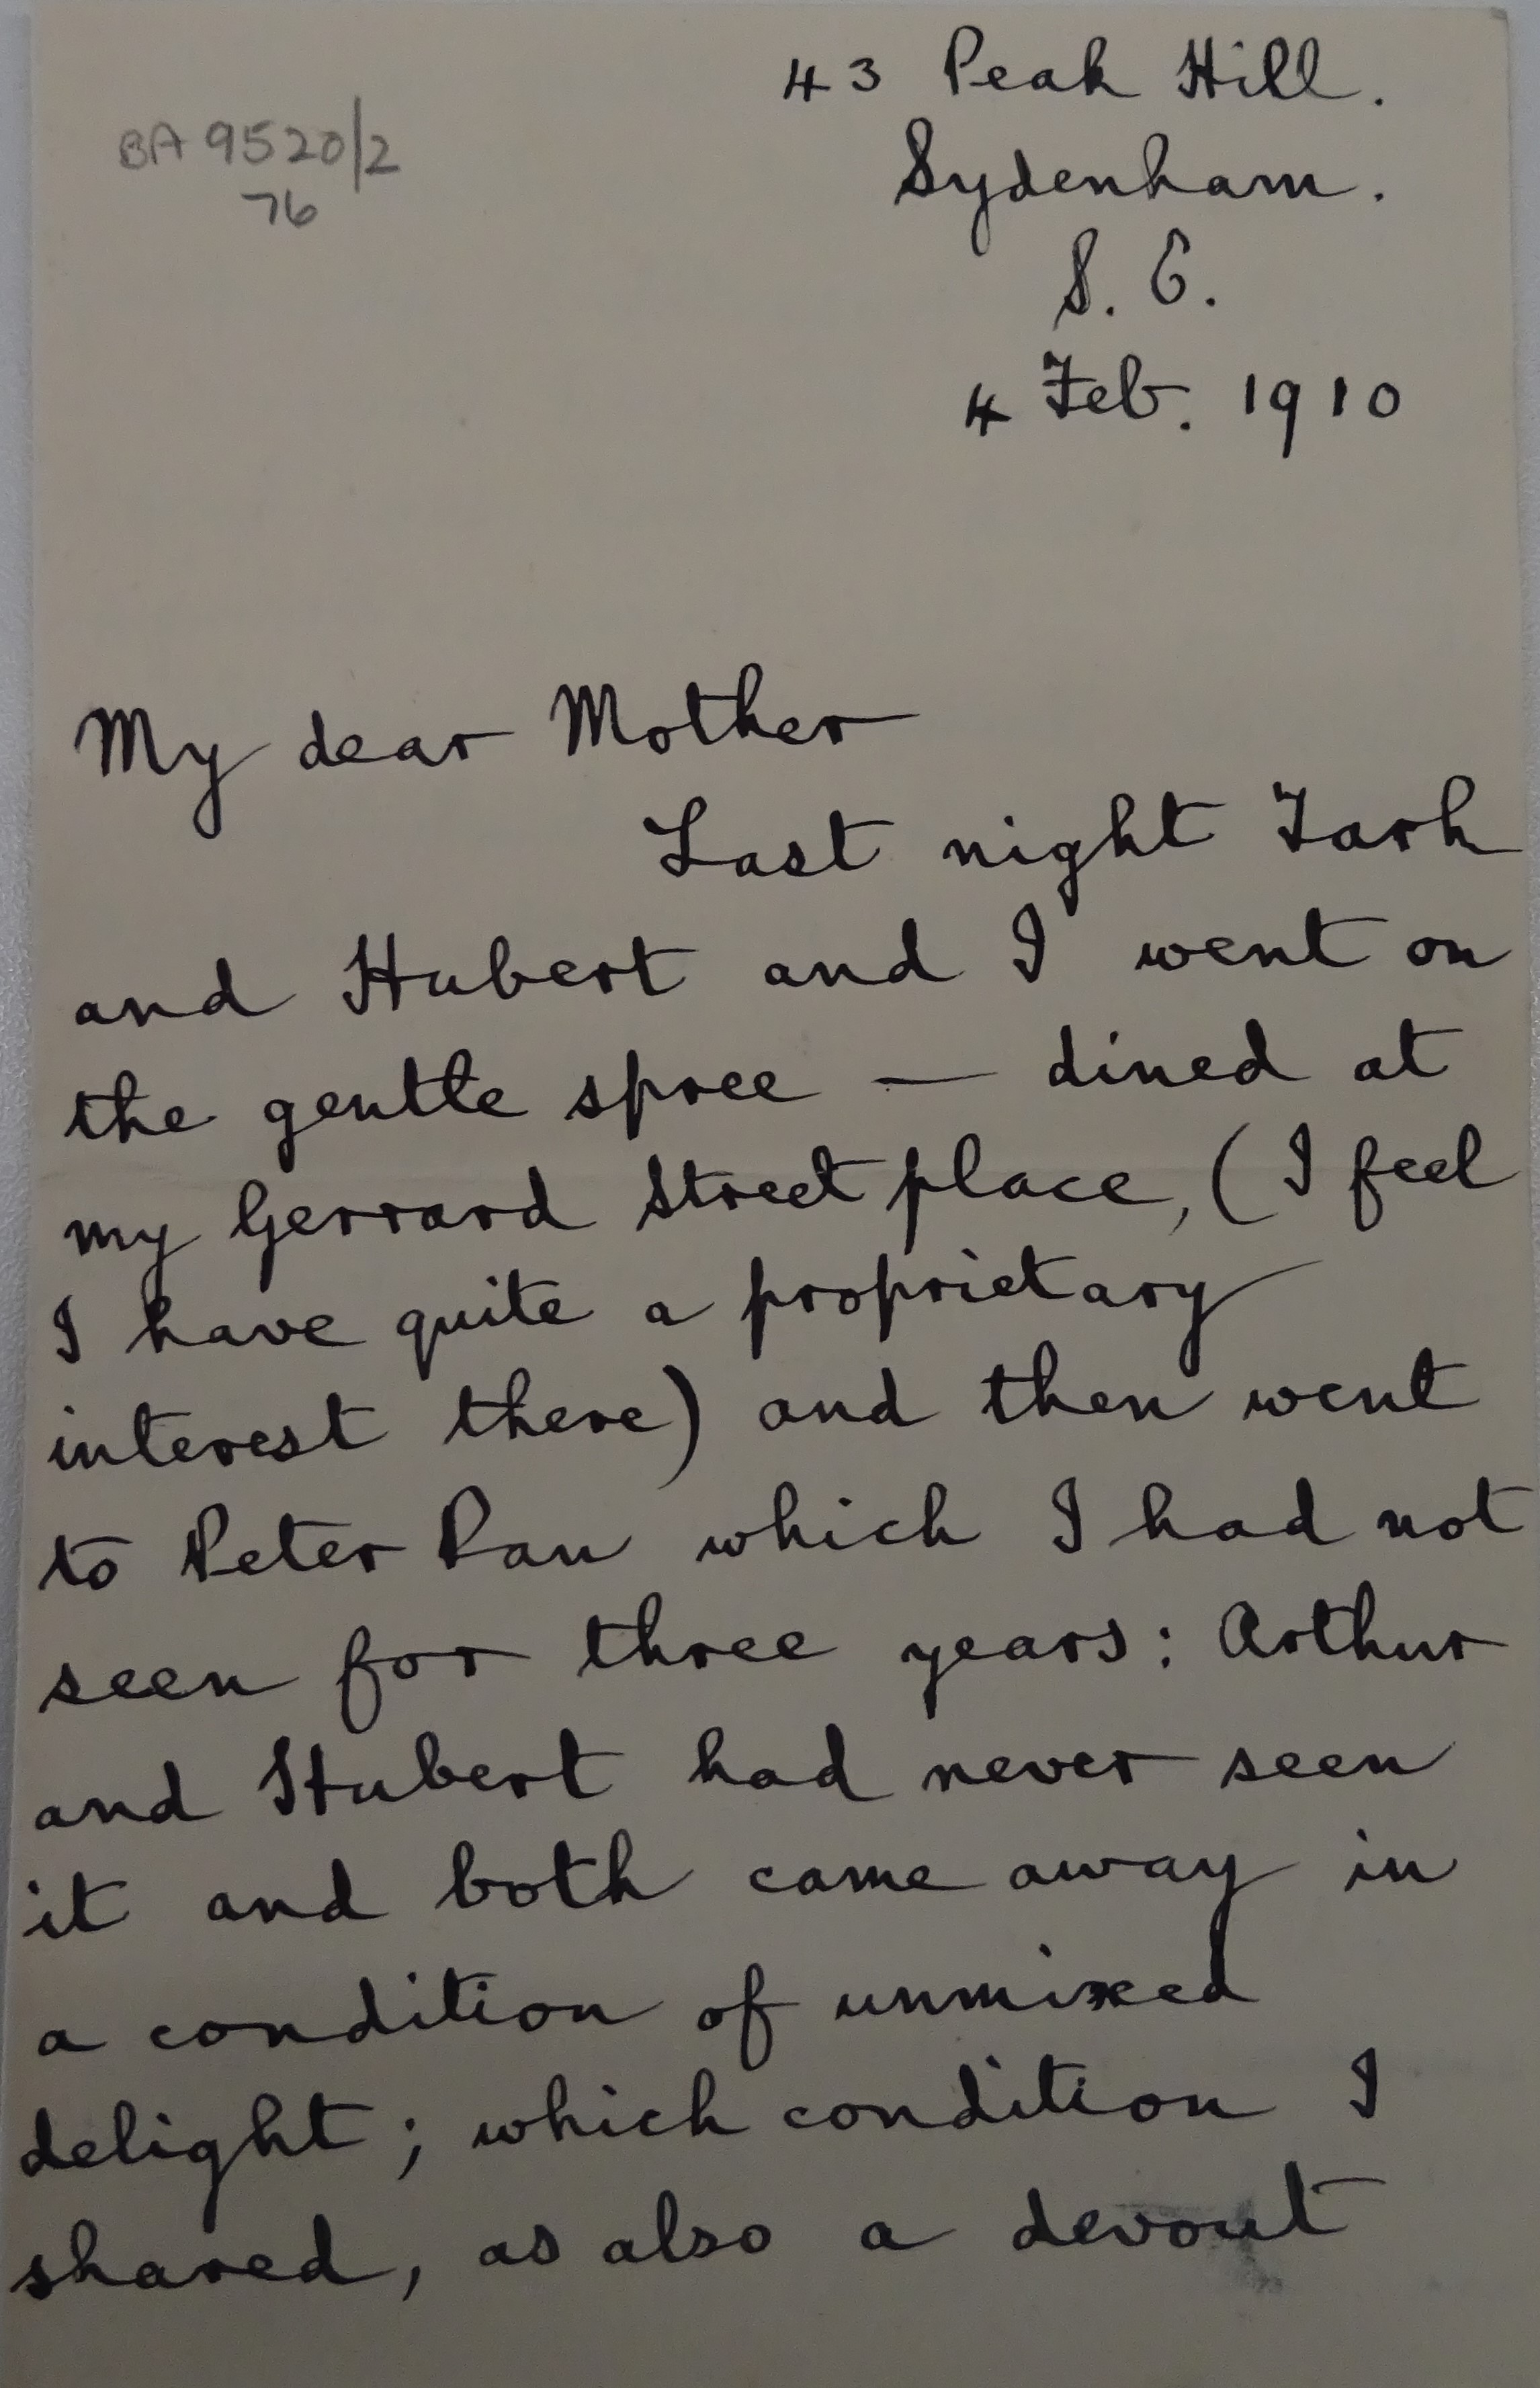 43 Peak Hill.
BA 9520/2
76
Sydenham.
S. E.
4 Feb. 1910
My dear Mother
Last night Tark
and Hubert and I went on
the gentle spree — dined at
my Gerrard Street place, (I feel
I have quite a proprietary
interest there) and then went
to Peter Pan which I had not
seen for three years: Arthur
and Hubert had never seen
it and both came away in
a condition of unmixed
delight; which condition I
shared, as also a devout